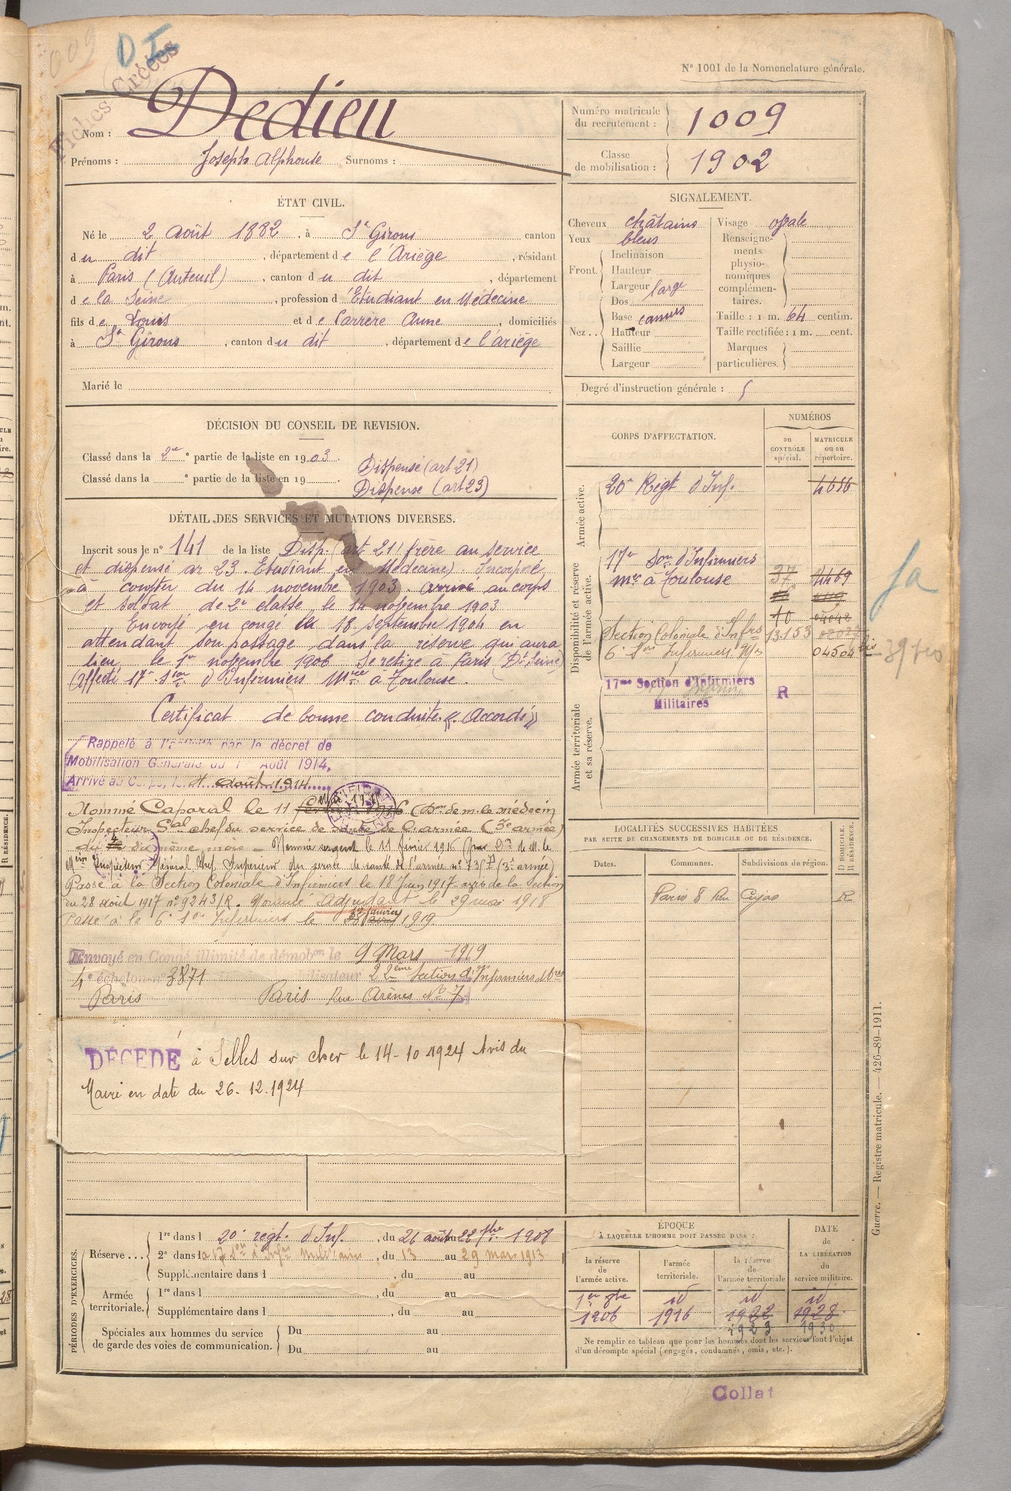 009
D I
Fiches Créées
N° 1001 de la Nomenclature générale.
Nom : Dedieu
Prénoms : Joseph Alphonse Surnoms :
Numéro matricule du recrutement : 1009
Classe de mobilisation : 1902
ÉTAT CIVIL.
Né le 2 août 1882, à St Girons canton
du dit, département de l'Ariège, résidant
à Paris (Auteuil), canton du dit, département
de la Seine, profession d'Etudiant en Médecine
fils de Louis et de Carrère Anne, domiciliés
à St Girons, canton du dit, département de l'ariège
Marié le
SIGNALEMENT.
Cheveux châtains
Yeux bleus
Front. Inclinaison
Hauteur
Largeur large
Nez. Dos
Base
Hauteur
Saillie
Largeur
Visage ovale
Renseignements physionomiques complémentaires.
Taille : 1 m. 64 centim.
Taille rectifiée : 1 m. cent.
Marques particulières.
Degré d'instruction générale : 5
DÉCISION DU CONSEIL DE REVISION.
Classé dans la 2e partie de la liste en 1903. Dispensé (art 21)
Classé dans la e partie de la liste en 19 Dispensé (art 23)
DÉTAIL DES SERVICES ET MUTATIONS DIVERSES.
Inscrit sous le n° 141 de la liste Disp. (art 21) frère au service
et dispensé ar 23. Etudiant en Médecine). Incorporé
à compter du 14 novembre 1903. arrivé au corps
et soldat de 2e classe le 14 novembre 1903
Envoyé en congé le 18 septembre 1904 en
attendant son passage dans la réserve qui aura
lieu le 1er novembre 1906 Se retire à Paris (Dt Seine)
(Affecté 17e Son d'Infirmiers Mres à Toulouse.
Certificat de bonne conduite « Accordé »
Rappelé à l'activité par le décret de
Mobilisation Générale du 1er Août 1914,
Arrivé au Corps, le 4 août 1914
Nommé Caporal le 11 (Don de m. le médecin
Inspecteur Gal chef du service de santé de l'armée (3e armée)
du dixième mois - Nommé sergent le 11 février 1916 (par Don de M. le
Min Inspecteur Général Chef Supérieur du service de santé de l'armée n° 73/7 (3e armée)
Passé à la Section Coloniale d'Infirmiers le 18 Juin 1917 avis de la Section
du 28 août 1917 n° 9243/R. Nommé Adjudant le 29 mai 1918
Passé à la 6e Son Infirmiers le janvier 1919
Envoyé en Congé illimité de démobon le 9 Mars 1919
4e échelon n° 3871 22ème Section d'Infirmiers Mres
Paris Paris Rue Arènes No 7
DÉCÉDÉ à Selles sur cher le 14-10-1924 Avis du
Maire en date du 26-12-1924
CORPS D'AFFECTATION.
NUMÉROS
DU CONTRÔLE spécial.
MATRICULE OU AU répertoire.
Armée active.
20e Regt d'Inf. 4656
Disponibilité et réserve de l'armée active.
17e Son d'Infirmiers
mres à Toulouse 37 4469
10
Section Coloniale d'Infrs 13153
6e Son Infirmiers Mres 04504 bis
39 bis
Ja
Armée territoriale et sa réserve.
17me Section d'Infirmiers Militaires R
LOCALITÉS SUCCESSIVES HABITÉES
PAR SUITE DE CHANGEMENTS DE DOMICILE OU DE RÉSIDENCE.
Dates. Communes. Subdivisions du région. D DOMICILE. R RÉSIDENCE.
Paris 8 Rue Cujas R
PÉRIODES D'EXERCICES.
Réserve... 1re dans l 20e regt. d'Inf., du 26 août au 22 7bre 1908
2e dans la 17 Son d'Infrs Militaires, du 13 au 29 mars 1913
Supplémentaire dans l , du au
Armée territoriale. 1re dans l , du au
Supplémentaire dans l , du au
Spéciales aux hommes du service de garde des voies de communication. Du au
Du au
ÉPOQUE
À LAQUELLE L'HOMME DOIT PASSER DANS :
la réserve de l'armée active. l'armée territoriale. la réserve de l'armée territoriale
DATE DE LA LIBÉRATION du service militaire.
1er 9bre 1906 id 1916 id 1922 id 1928
1923 1930
Ne remplir ce tableau que pour les hommes dont les services font l'objet
d'un décompte spécial (engagés, condamnés, omis, etc.).
Guerre. — Registre matricule. — 426-89-1911.
Collat